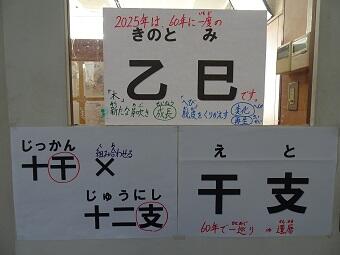 2025年は、60年に一度の
きのと み
乙巳
です。
「木」
新たな芽吹き 成長
せいちょう
「へび」
脱皮をくりかえす
変化
再生
じっかん
十干
組み合わせる
×
じゅうにし
十二支
え と
干支
60年で一巡り ⇒ 還暦